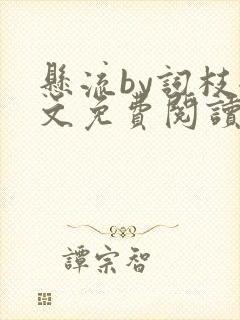 懸流by詞枝
文免費閱讀
譚宗智